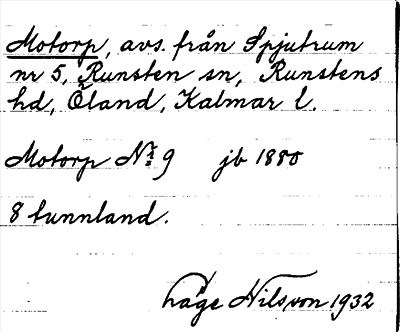 Motorp, avs. från Spjutrum
nr 5, Runsten sn, Runstens
hd, Öland, Kalmar l.
Motorp Nr 9 jb 1880
8 tunnland.
Tage Nilsson 1932